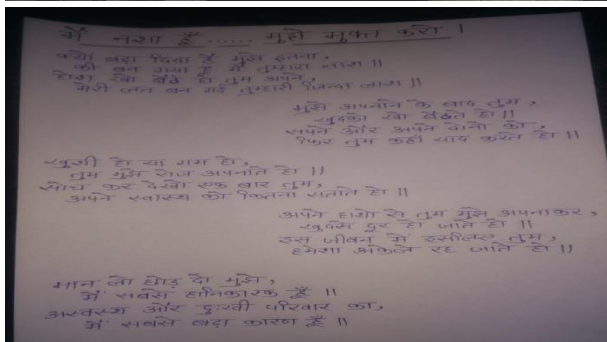 मैं नशा हूँ ...... मुझे मुक्त करो ।
क्यों बढ़ा दिया है मुझे इतना,
की बन गया हूँ मैं तुम्हारा नाश ||
होश खो बैठे हो तुम अपने,
मेरी लत बन गई तुम्हारी जिन्दा लाश ||
मुझे अपनाने के बाद तुम,
खुदको खो बैठते हो ||
सपने और अपने दोनो को,
फिर तुम कहाँ याद करते हो ||
खुशी हो या गम हो,
तुम मुझे रोज अपनाते हो ||
सोच कर देखो एक बार तुम,
अपने स्वास्थ्य को कितना सताते हो ||
अपने हाथो से तुम मुझे अपनाकर,
खुदसे दुर हो जाते हो ||
इस जीवन मे इसीलिए तुम,
हमेशा अकेले रह जाते हो ||
मान लो छोड़ दो मुझे,
मैं सबसे हानिकारक हूँ ||
अस्वस्थ और दुःखी परिवार का,
मैं सबसे बड़ा कारण हूँ ||